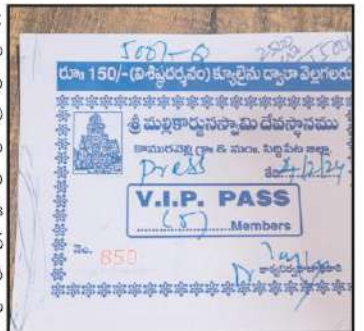 500/-
రూ॥ 150/-(విశిష్టదర్శనం) క్యూలైను ద్వారా వెళ్లగలరు
శ్రీ మల్లికార్జునస్వామి దేవస్థానము
కొమురవెల్లి గ్రా॥ & మం॥ సిద్దిపేట జిల్లా.
Press
తేది: 4/2/24
V.I.P. PASS
(5) Members
No. 850
కార్యనిర్వహణాధికారి